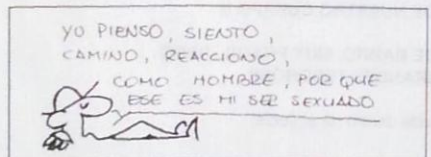 YO PIENSO, SIENTO,
CAMINO, REACCIONO,
COMO HOMBRE, POR QUE
ESE ES MI SER SEXUADO